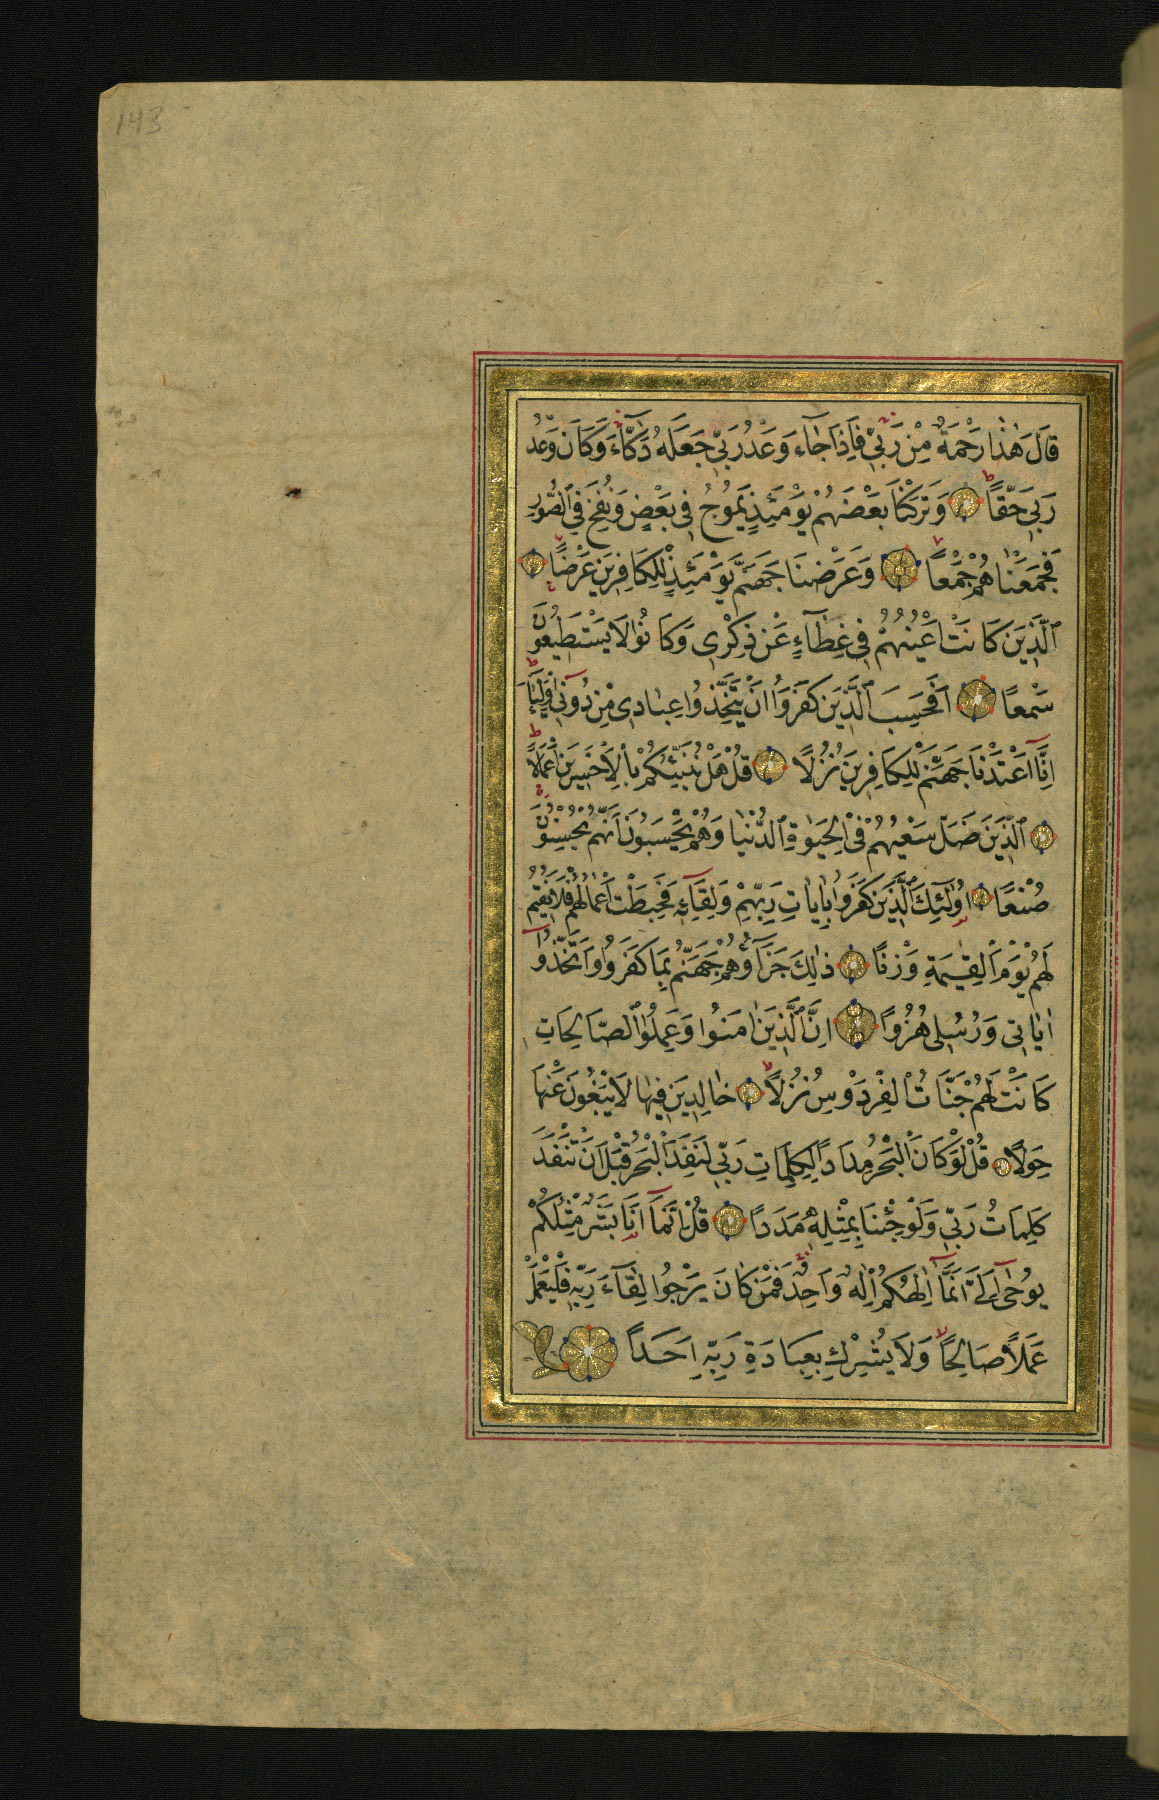 143
قَالَ هٰذَا رَحْمَةٌ مِنْ رَبّٖي فَاِذَا جَٓاءَ وَعْدُ رَبّٖي جَعَلَهُ دَكَّٓاءَ وَكَانَ وَعْدُ
رَبّٖي حَقًّا وَتَرَكْنَا بَعْضَهُمْ يَوْمَئِذٍ يَمُوجُ فٖي بَعْضٍ وَنُفِخَ فِي الصُّورِ
فَجَمَعْنَاهُمْ جَمْعًا وَعَرَضْنَا جَهَنَّمَ يَوْمَئِذٍ لِلْكَافِرٖينَ عَرْضًا
اَلَّذٖينَ كَانَتْ اَعْيُنُهُمْ فٖي غِطَٓاءٍ عَنْ ذِكْرٖي وَكَانُوا لَا يَسْتَطٖيعُونَ
سَمْعًا اَفَحَسِبَ الَّذٖينَ كَفَرُٓوا اَنْ يَتَّخِذُوا عِبَادٖي مِنْ دُونٖٓي اَوْلِيَٓاءَ
اِنَّٓا اَعْتَدْنَا جَهَنَّمَ لِلْكَافِرٖينَ نُزُلًا قُلْ هَلْ نُنَبِّئُكُمْ بِالْاَخْسَرٖينَ اَعْمَالًا
اَلَّذٖينَ ضَلَّ سَعْيُهُمْ فِي الْحَيٰوةِ الدُّنْيَا وَهُمْ يَحْسَبُونَ اَنَّهُمْ يُحْسِنُونَ
صُنْعًا اُولٰٓئِكَ الَّذٖينَ كَفَرُوا بِاٰيَاتِ رَبِّهِمْ وَلِقَٓائِهٖ فَحَبِطَتْ اَعْمَالُهُمْ فَلَا نُقٖيمُ
لَهُمْ يَوْمَ الْقِيٰمَةِ وَزْنًا ذٰلِكَ جَزَٓاؤُهُمْ جَهَنَّمُ بِمَا كَفَرُوا وَاتَّخَذُٓوا
اٰيَاتٖي وَرُسُلٖي هُزُوًا اِنَّ الَّذٖينَ اٰمَنُوا وَعَمِلُوا الصَّالِحَاتِ
كَانَتْ لَهُمْ جَنَّاتُ الْفِرْدَوْسِ نُزُلًا خَالِدٖينَ فٖيهَا لَا يَبْغُونَ عَنْهَا
حِوَلًا قُلْ لَوْ كَانَ الْبَحْرُ مِدَادًا لِكَلِمَاتِ رَبّٖي لَنَفِدَ الْبَحْرُ قَبْلَ اَنْ تَنْفَدَ
كَلِمَاتُ رَبّٖي وَلَوْ جِئْنَا بِمِثْلِهٖ مَدَدًا قُلْ اِنَّمَٓا اَنَا بَشَرٌ مِثْلُكُمْ
يُوحٰٓى اِلَيَّ اَنَّمَٓا اِلٰهُكُمْ اِلٰهٌ وَاحِدٌ فَمَنْ كَانَ يَرْجُوا لِقَٓاءَ رَبِّهٖ فَلْيَعْمَلْ
عَمَلًا صَالِحًا وَلَا يُشْرِكْ بِعِبَادَةِ رَبِّهٖٓ اَحَدًا